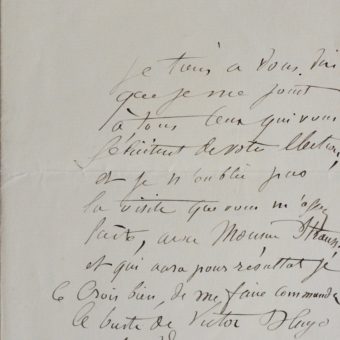 je tiens a vous dir
que je me joint
à tous ceux qui vous
felicitent de votre election
et je n'oublie pas
la visite que vous m'avez
faite, avec Monsieur Strauss
et qui aura pour résultat je
le crois bien, de me faire commande
le buste de Victor Hugo